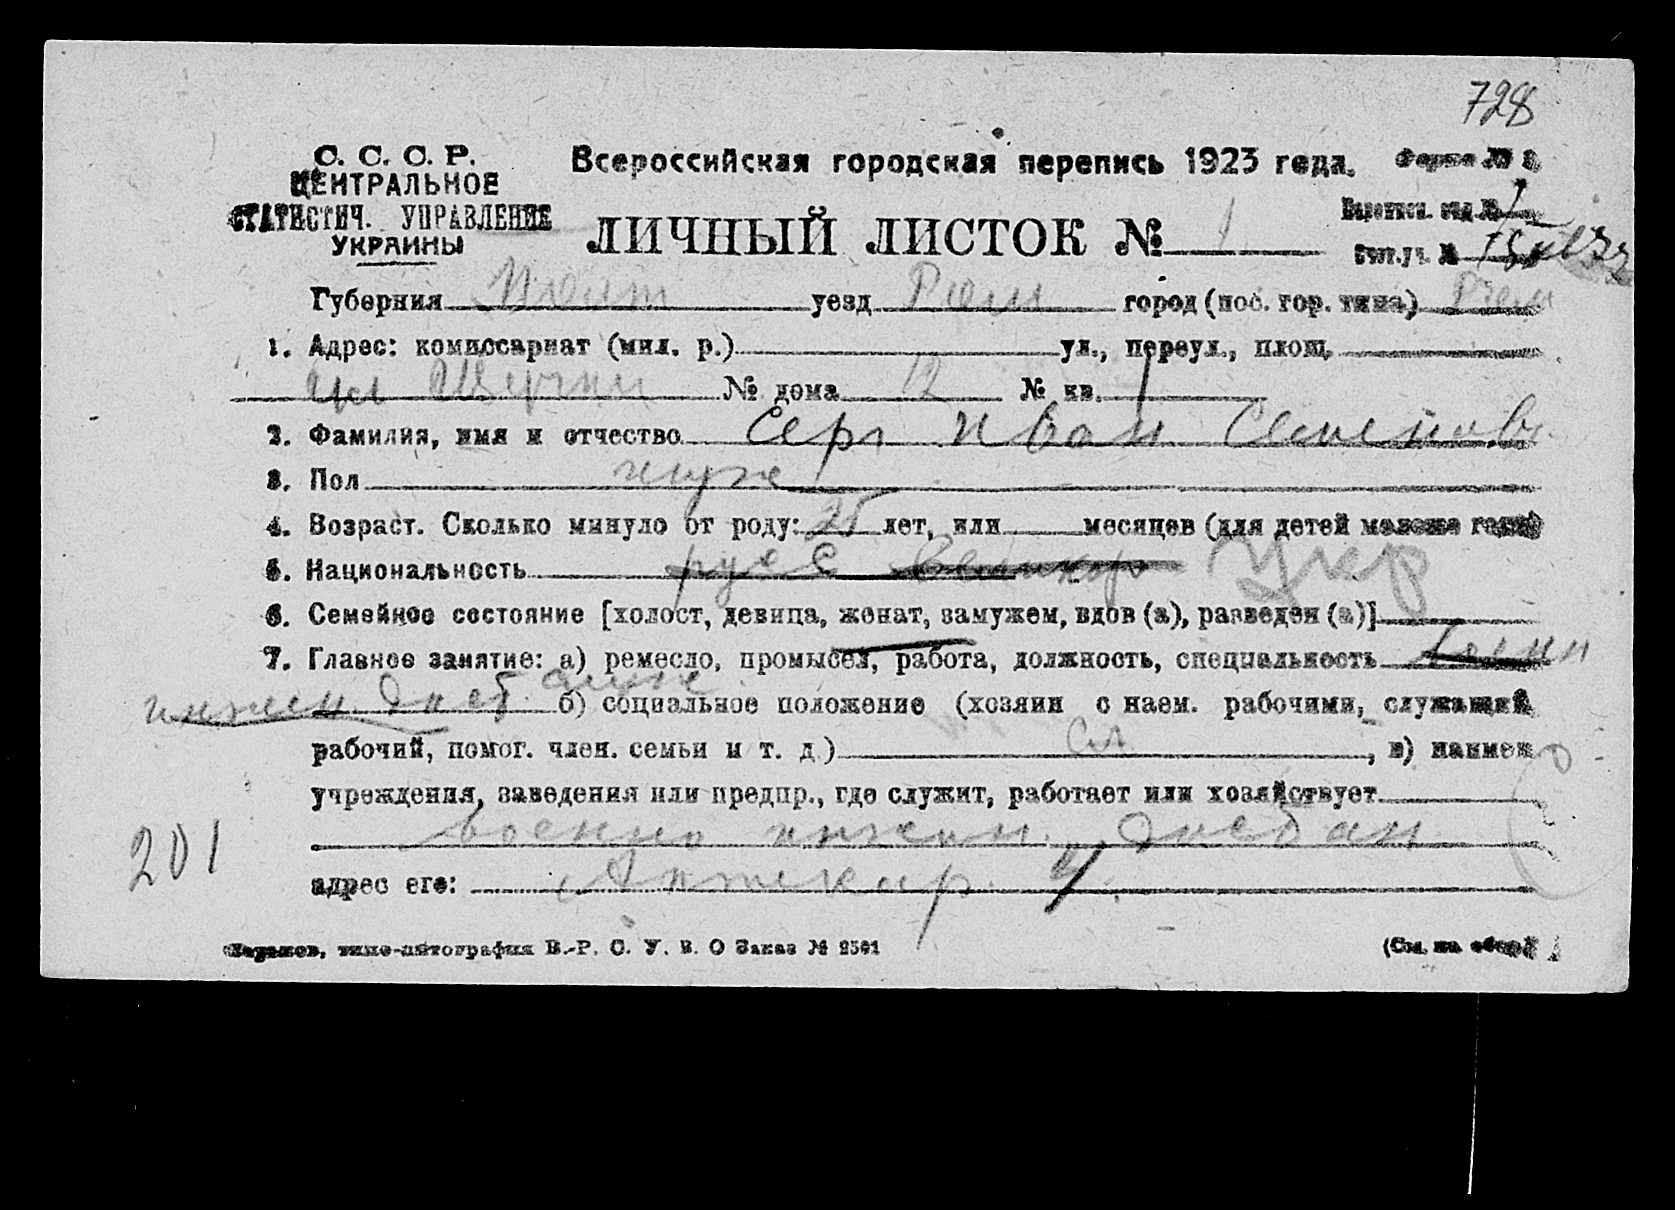 728
С. С. С. Р.
ЦЕНТРАЛЬНОЕ
СТАТИСТИЧ. УПРАВЛЕНИЕ
УКРАИНЫ
Всероссийская городская перепись 1923 года.
ЛИЧНЫЙ ЛИСТОК № 1
Губерния Полт уезд Ром город (пос. гор. типа) Ром
1. Адрес: комиссариат (мил. р.) ул., переул., площ.
№ дома 12 № кв. 1
2. Фамилия, имя и отчество Иван
3. Пол муж
4. Возраст. Сколько минуло от роду: 25 лет, или месяцев (для детей моложе года)
5. Национальность русс великор Укр
6. Семейное состояние [холост, девица, женат, замужем, вдов (а), разведен (а)]
7. Главное занятие: а) ремесло, промысел, работа, должность, специальность
инжен. б) социальное положение (хозяин с наем. рабочими, служащий,
рабочий, помог. член. семьи и т. д.) сл , в) наимен.
учреждения, заведения или предпр., где служит, работает или хозяйствует
военно инжен.
201
адрес его:
типо-литография В.-Р. С. У. В. О Заказ № 2501
(См. на оборот